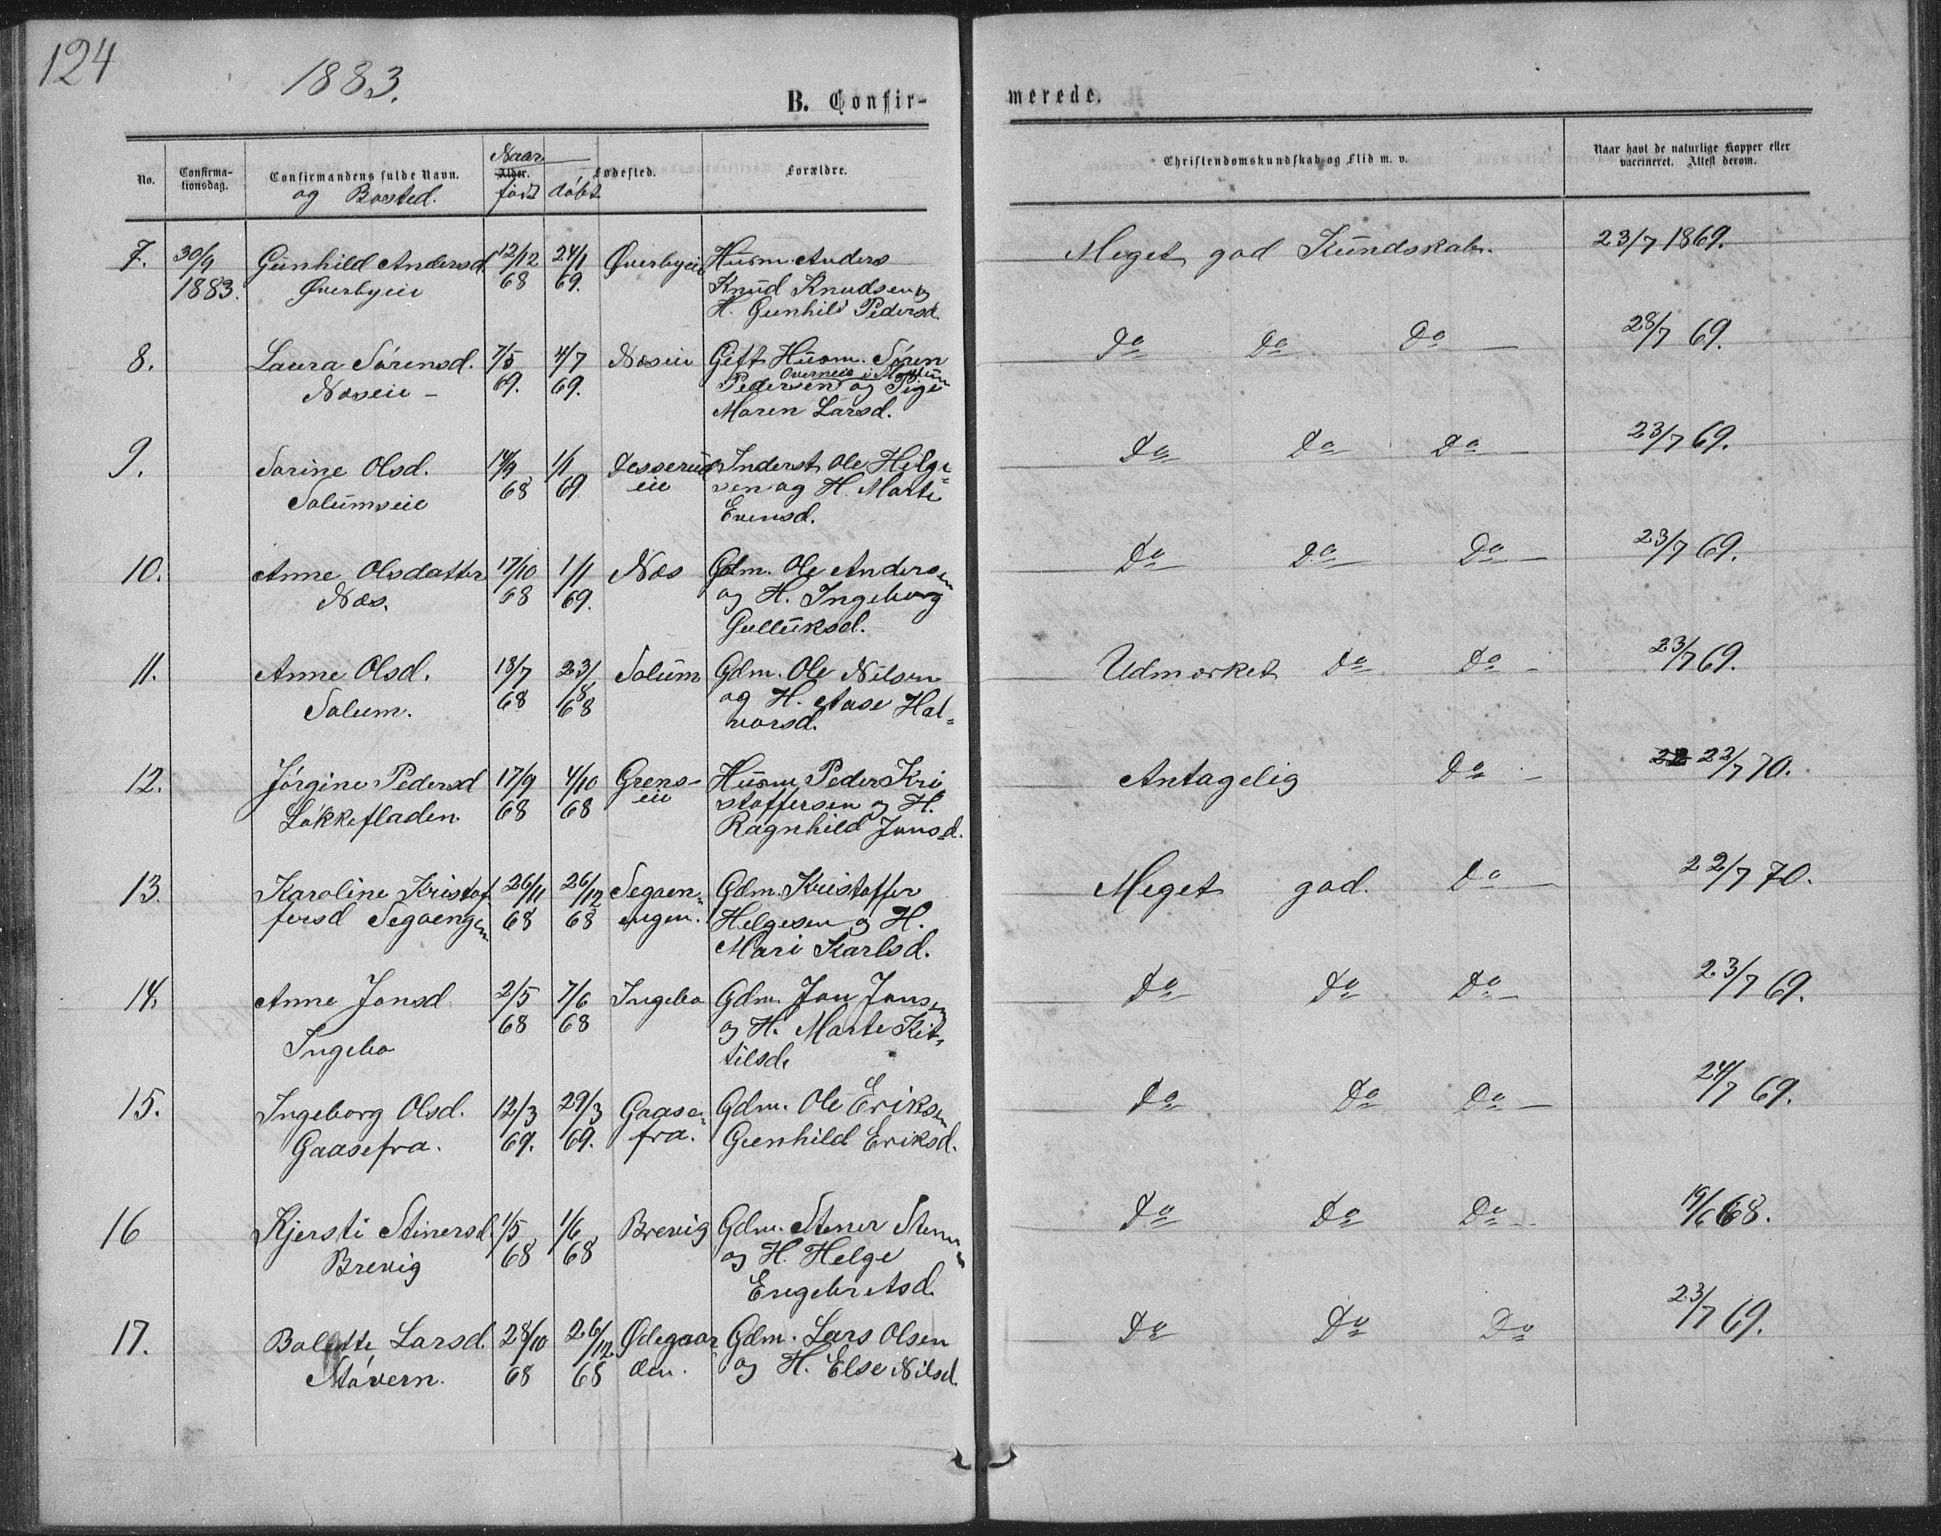 124
1883.
B. Confir-
merede.
No.
Confirma-
tionsdag.
Confirmandens fulde Navn.
og Bosted.
Naar
Alder.
født
døbt
Fødested.
Forældre.
Christendomskundskab og Flid m. v.
Naar havt de naturlige Kopper eller
vaccineret. Attest derom.
7. 30/9 Gunhild Andersd. 12/12 24/1 Øverbyeie Husm. Anders Meget god Kundskab. 23/7 1869.
1883. Øverbyeie 68 69. Knud Knudsen og
H. Gunhild Pedersd.
8. Laura Sørensd. 7/5 4/7 Næseie Gift Husm. Søren Do Do Do 28/7 69.
Overneie i
Næseie 69. 69. Pedersen og Pige
Maren Larsd.
9. Sorine Olsd. 14/9 1/1 Jesserud Inderst Ole Helge Do Do Do 23/7 69.
Solumseie 68 69 eie sen og H. Marte
Evensd.
10. Anne Olsdatter 17/10 1/1 Næs Gdm. Ole Andersen Do Do Do 23/7 69.
Næs. 68 69. og H. Ingeborg
Gulluksd.
11. Anne Olsd. 18/7 23/8 Solum Gdm. Ole Nilsen Udmærket Do Do 23/7 69.
Solum. 68 68 og H. Aase Hal-
vorsd.
12. Jørgine Pedersd 17/9 4/10 Grens- Husm Peder Kri Antagelig Do 22 22/7 70.
Løkkefladen 68 68 eie stoffersen og H.
Ragnhild Jonsd.
13. Karoline Kristof 26/11 26/12 Segaen- Gdm. Kristoffer Meget god. Do 22/7 70.
fersd Segaengen 68 68 engen. Helgesen og H.
Mari Karlsd.
14. Anne Jonsd. 2/5 7/6 Ingebo Gdm. Jon Jonsen Do Do Do 23/7 69.
Ingebo 68 68 og H. Marte Kit-
tilsd.
15. Ingeborg Olsd. 12/3 29/3 Gaase- Gdm. Ole Eriksen Do Do Do 24/7 69.
Gaasefra. 69. 69. fra. Gunhild Eriksd.
16 Kjersti Stenersd. 1/5 1/6 Brevig Gdm. Stener Stenersen Do Do Do 19/6 68.
Brevig 68 68 og H. Helge
Engebretsd.
17. Bolette Larsd. 28/10 26/12 Ødegaar Gdm. Lars Olsen Do Do Do 23/7 69.
Støvern. 68 68 den. og H. Else Nilsd.